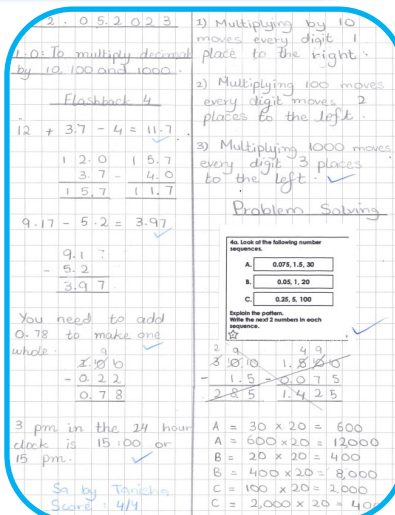 2.05.2023
L.O: To multiply decimal
by 10, 100 and 1000.
Flashback 4
12 + 3.7 - 4 = 11.7
1 2.0
3.7
1 5.7
1 5.7
- 4.0
1 1.7
9.17 - 5.2 = 3.97
9.1 7
- 5.2
3.9 7
You need to add
0.78 to make one
whole.
9
1.10 0
- 0.2 2
0.7 8
3 pm in the 24 hour
clock is 15:00 or
15 pm.
Sa by Tanisha
Score: 4/4
1) Multiplying by 10
moves every digit 1
place to the right.
2) Multiplying 100 moves
every digit moves 2
places to the left.
3) Multiplying 1000 moves
every digit 3 places
to the left.
Problem Solving
4a. Look at the following number
sequences.
A. 0.075, 1.5, 30
B. 0.05, 1, 20
C. 0.25, 5, 100
Explain the pattern.
Write the next 2 numbers in each
sequence.
- 1.5
2 8.5
- 0.0 7 5
1.4 2 5
A = 30 x 20 = 600
A = 600 x 20 = 12,000
B = 20 x 20 = 400
B = 400 x 20 = 8,000
C = 100 x 20 = 2,000
C = 2,000 x 20 = 40